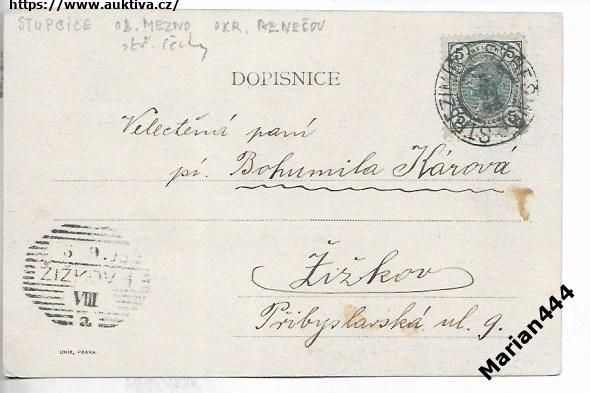 https://www.auktiva.cz/
STUPČICE OB. MEZNO OKR. BENEŠOV
stř. Čechy
DOPISNICE
Velectěná paní
pí. Bohumila Kárová
Žižkov
Přibyslavská ul. 9.
ŽIŽKOV
VIII
a
UNIE, PRAHA.
Marian444